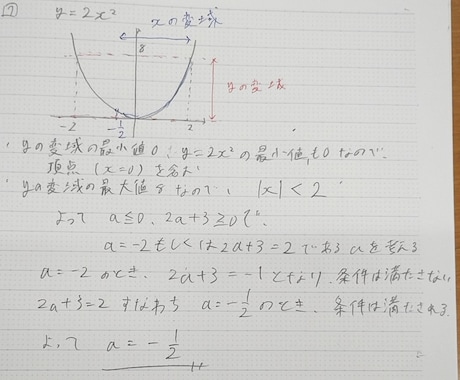 ⑦ y=2x²
xの変域
8
yの変域
-2 -1/2 2 x
・yの変域の最小値0、y=2x²の最小値も0なので、
頂点 (x=0) を含む
・yの変域の最大値8なので、 |x|<2
よって a≦0, 2a+3≧0で、
a=-2もしくは2a+3=2であるaを考える
a=-2のとき、2a+3=-1となり、条件は満たさない
2a+3=2 すなわち a=-1/2のとき、条件は満たされる.
よって a=-1/2